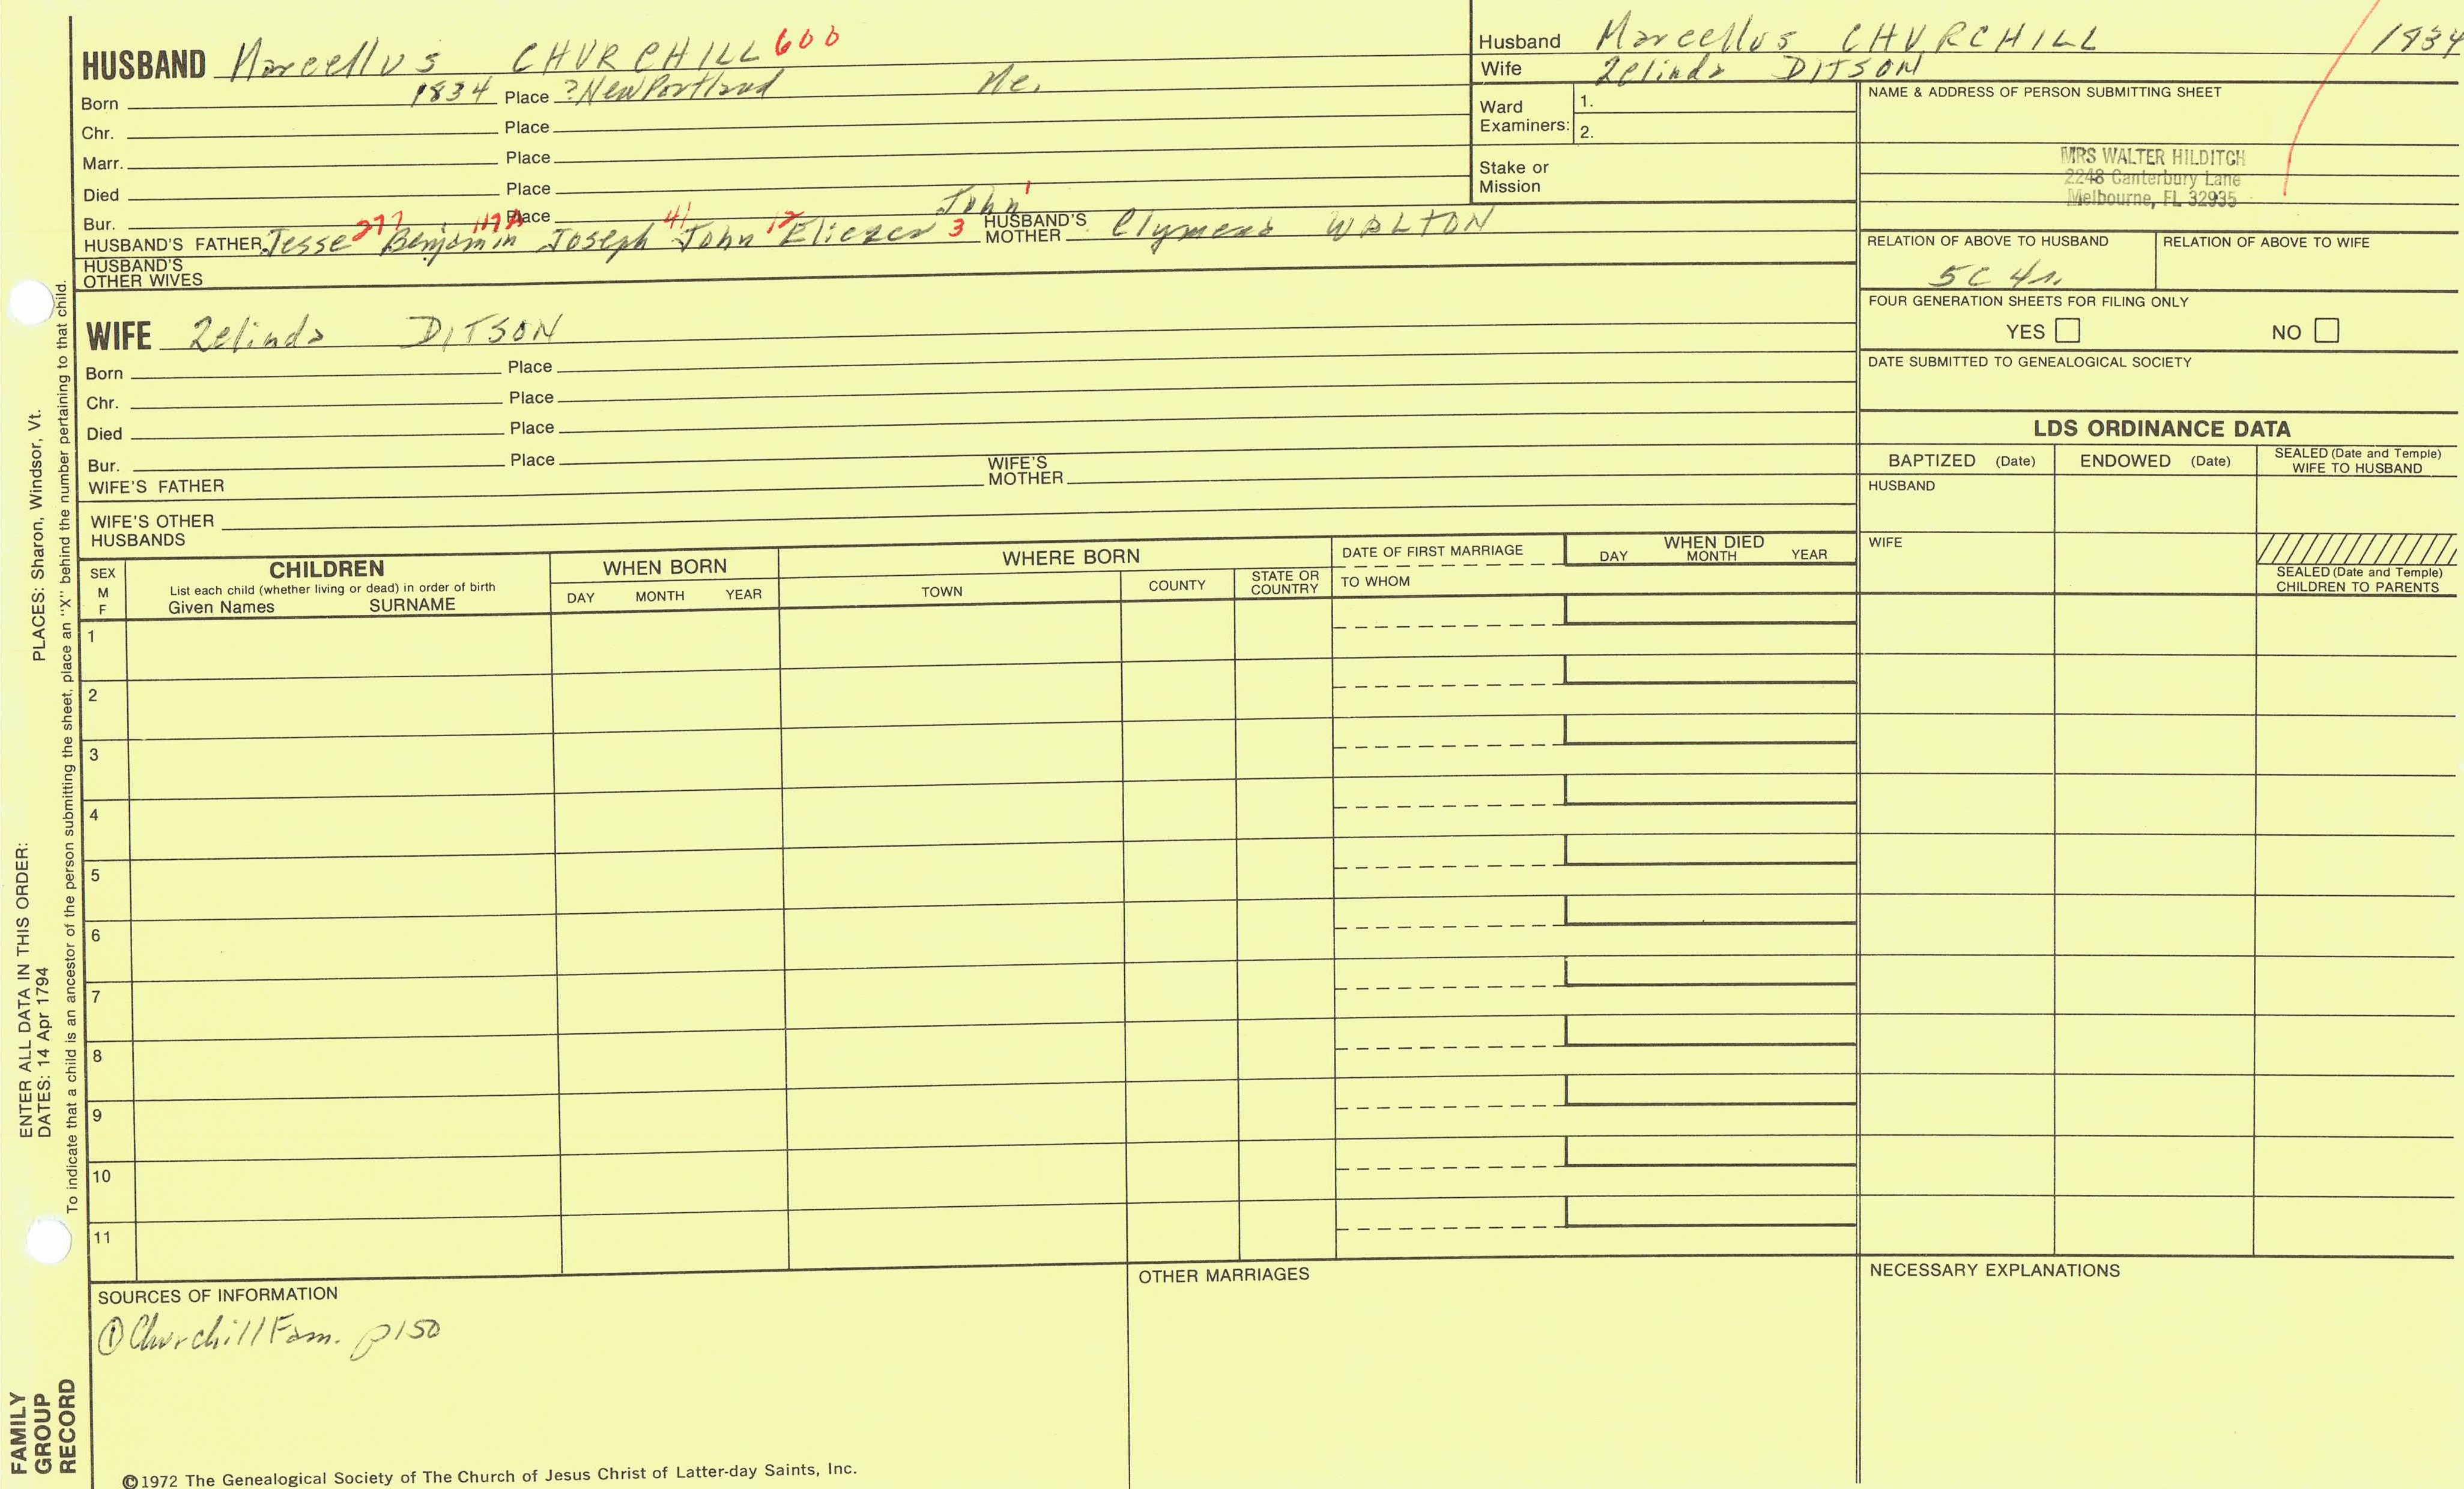 HUSBAND Marcellus CHURCHILL 600
Born 1834 Place ?New Portland Me.
Chr. Place
Marr. Place
Died Place
Bur. Place
John 1
HUSBAND'S FATHER Jesse 277 Benjamin 117A Joseph 41 John 12 Eliezer 3 HUSBAND'S MOTHER Clymena WALTON
HUSBAND'S OTHER WIVES
WIFE Zelinda DITSON
Born Place
Chr. Place
Died Place
Bur. Place
WIFE'S FATHER WIFE'S MOTHER
WIFE'S OTHER HUSBANDS
Husband Marcellus CHURCHILL 1834
Wife Zelinda DITSON
Ward Examiners: 1.
2.
Stake or Mission
NAME & ADDRESS OF PERSON SUBMITTING SHEET
MRS WALTER HILDITCH
2248 Canterbury Lane
Melbourne, FL 32935
RELATION OF ABOVE TO HUSBAND RELATION OF ABOVE TO WIFE
5C 4r.
FOUR GENERATION SHEETS FOR FILING ONLY
YES NO
DATE SUBMITTED TO GENEALOGICAL SOCIETY
LDS ORDINANCE DATA
BAPTIZED (Date) ENDOWED (Date) SEALED (Date and Temple) WIFE TO HUSBAND
HUSBAND
WIFE
SEALED (Date and Temple) CHILDREN TO PARENTS
SEX M F
CHILDREN
List each child (whether living or dead) in order of birth
Given Names SURNAME
WHEN BORN
DAY MONTH YEAR
WHERE BORN
TOWN COUNTY STATE OR COUNTRY
DATE OF FIRST MARRIAGE
TO WHOM
WHEN DIED
DAY MONTH YEAR
1
2
3
4
5
6
7
8
9
10
11
SOURCES OF INFORMATION
① Churchill Fam. p150
OTHER MARRIAGES
NECESSARY EXPLANATIONS
©1972 The Genealogical Society of The Church of Jesus Christ of Latter-day Saints, Inc.
FAMILY
GROUP
RECORD
ENTER ALL DATA IN THIS ORDER:
DATES: 14 Apr 1794 PLACES: Sharon, Windsor, Vt.
To indicate that a child is an ancestor of the person submitting the sheet, place an "X" behind the number pertaining to that child.